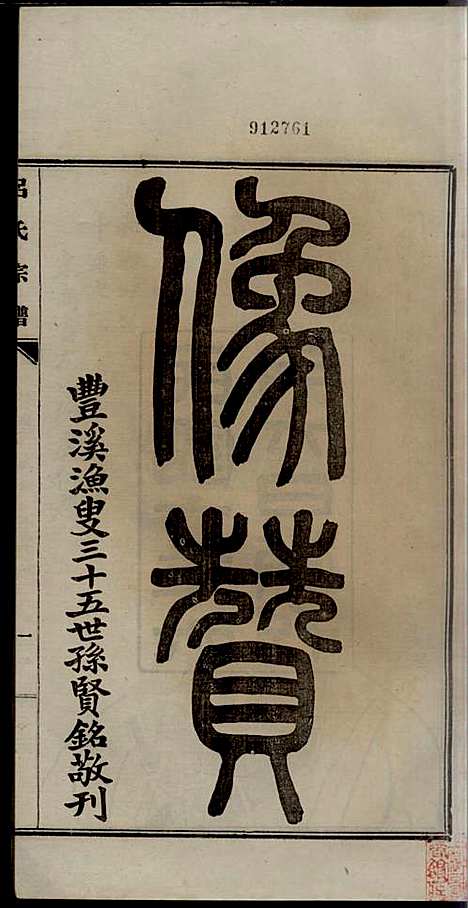 912761
像贊
豐溪漁叟三十五世孫賢銘敬刊
呂氏宗譜
一